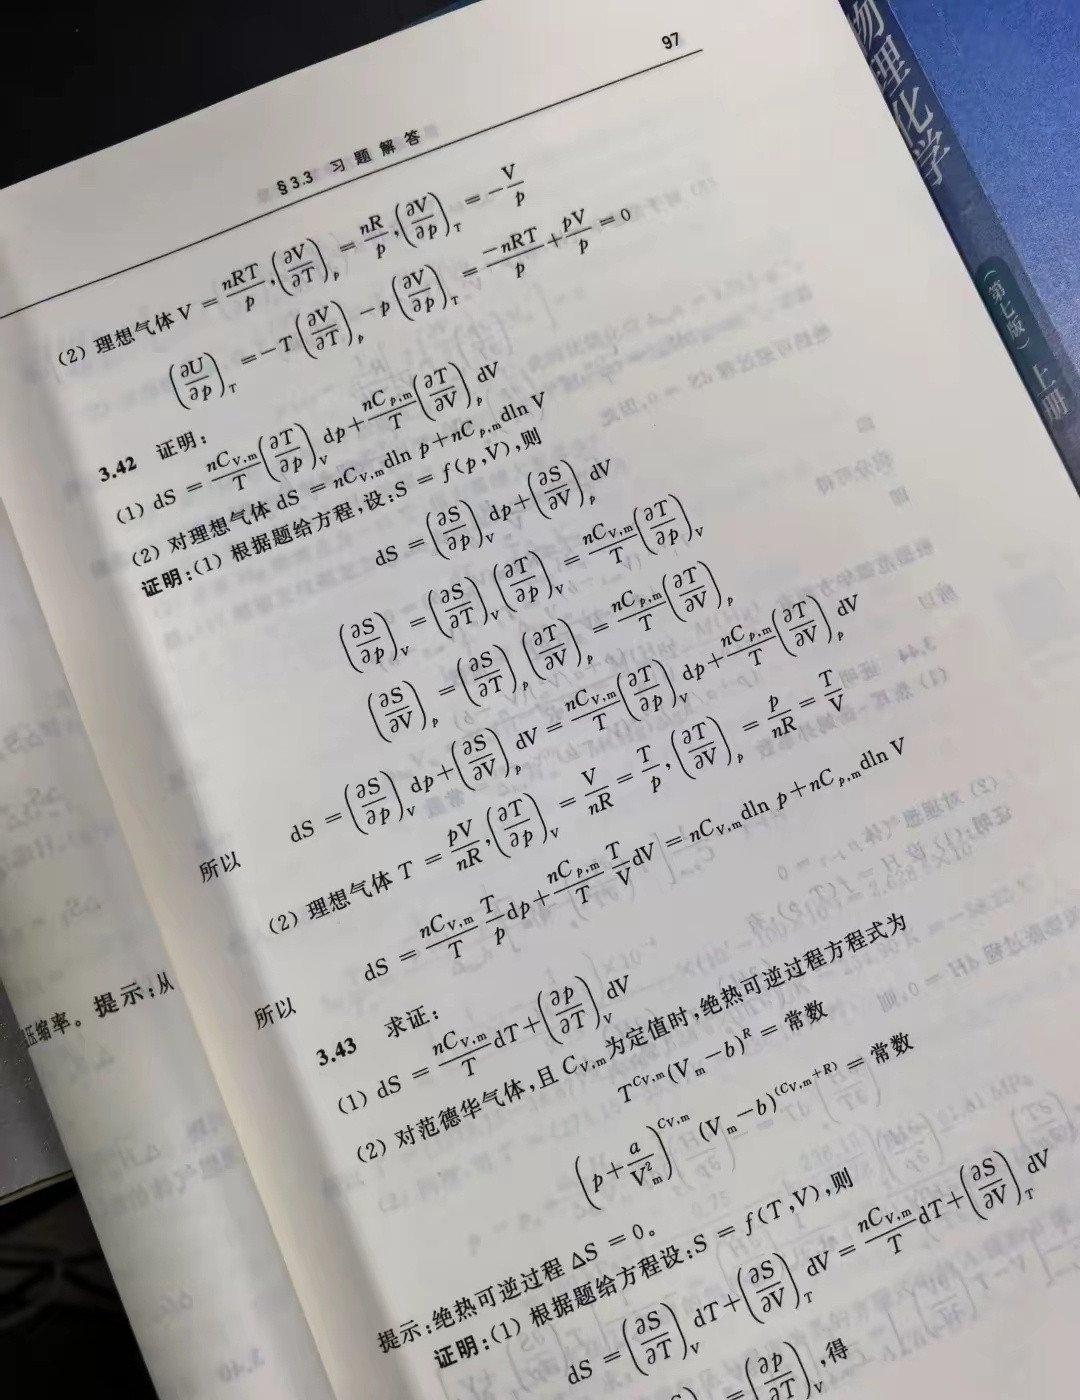 97
§3.3 习题解答
(2) 理想气体 V = nRT/p, (∂V/∂T)_p = nR/p, (∂V/∂p)_T = −V/p
(∂U/∂p)_T = −T(∂V/∂T)_p − p(∂V/∂p)_T = −nRT/p + pV/p = 0
3.42 证明:
(1) dS = nC_{V,m}/T (∂T/∂p)_V dp + nC_{p,m}/T (∂T/∂V)_p dV
(2) 对理想气体 dS = nC_{V,m}dln p + nC_{p,m}dln V
证明:(1) 根据题给方程,设:S = f(p,V),则
dS = (∂S/∂p)_V dp + (∂S/∂V)_p dV
(∂S/∂p)_V = (∂S/∂T)_V (∂T/∂p)_V = nC_{V,m}/T (∂T/∂p)_V
(∂S/∂V)_p = (∂S/∂T)_p (∂T/∂V)_p = nC_{p,m}/T (∂T/∂V)_p
所以 dS = (∂S/∂p)_V dp + (∂S/∂V)_p dV = nC_{V,m}/T (∂T/∂p)_V dp + nC_{p,m}/T (∂T/∂V)_p dV
(2) 理想气体 T = pV/nR, (∂T/∂p)_V = V/nR = T/p, (∂T/∂V)_p = p/nR = T/V
所以 dS = nC_{V,m}/T T/p dp + nC_{p,m}/T T/V dV = nC_{V,m}dln p + nC_{p,m}dln V
3.43 求证:
(1) dS = nC_{V,m}/T dT + (∂p/∂T)_V dV
(2) 对范德华气体,且 C_{V,m}为定值时,绝热可逆过程方程式为
T^{C_{V,m}}(V_m−b)^R = 常数
(p + a/V_m^2)^{C_{V,m}} (V_m−b)^{(C_{V,m}+R)} = 常数
提示:绝热可逆过程 ΔS = 0。
证明:(1) 根据题给方程设:S = f(T,V),则
dS = (∂S/∂T)_V dT + (∂S/∂V)_T dV = nC_{V,m}/T dT + (∂S/∂V)_T dV
= (∂p/∂T)_V ,得
压缩率。提示:从
物理化学
(第七版) 上册